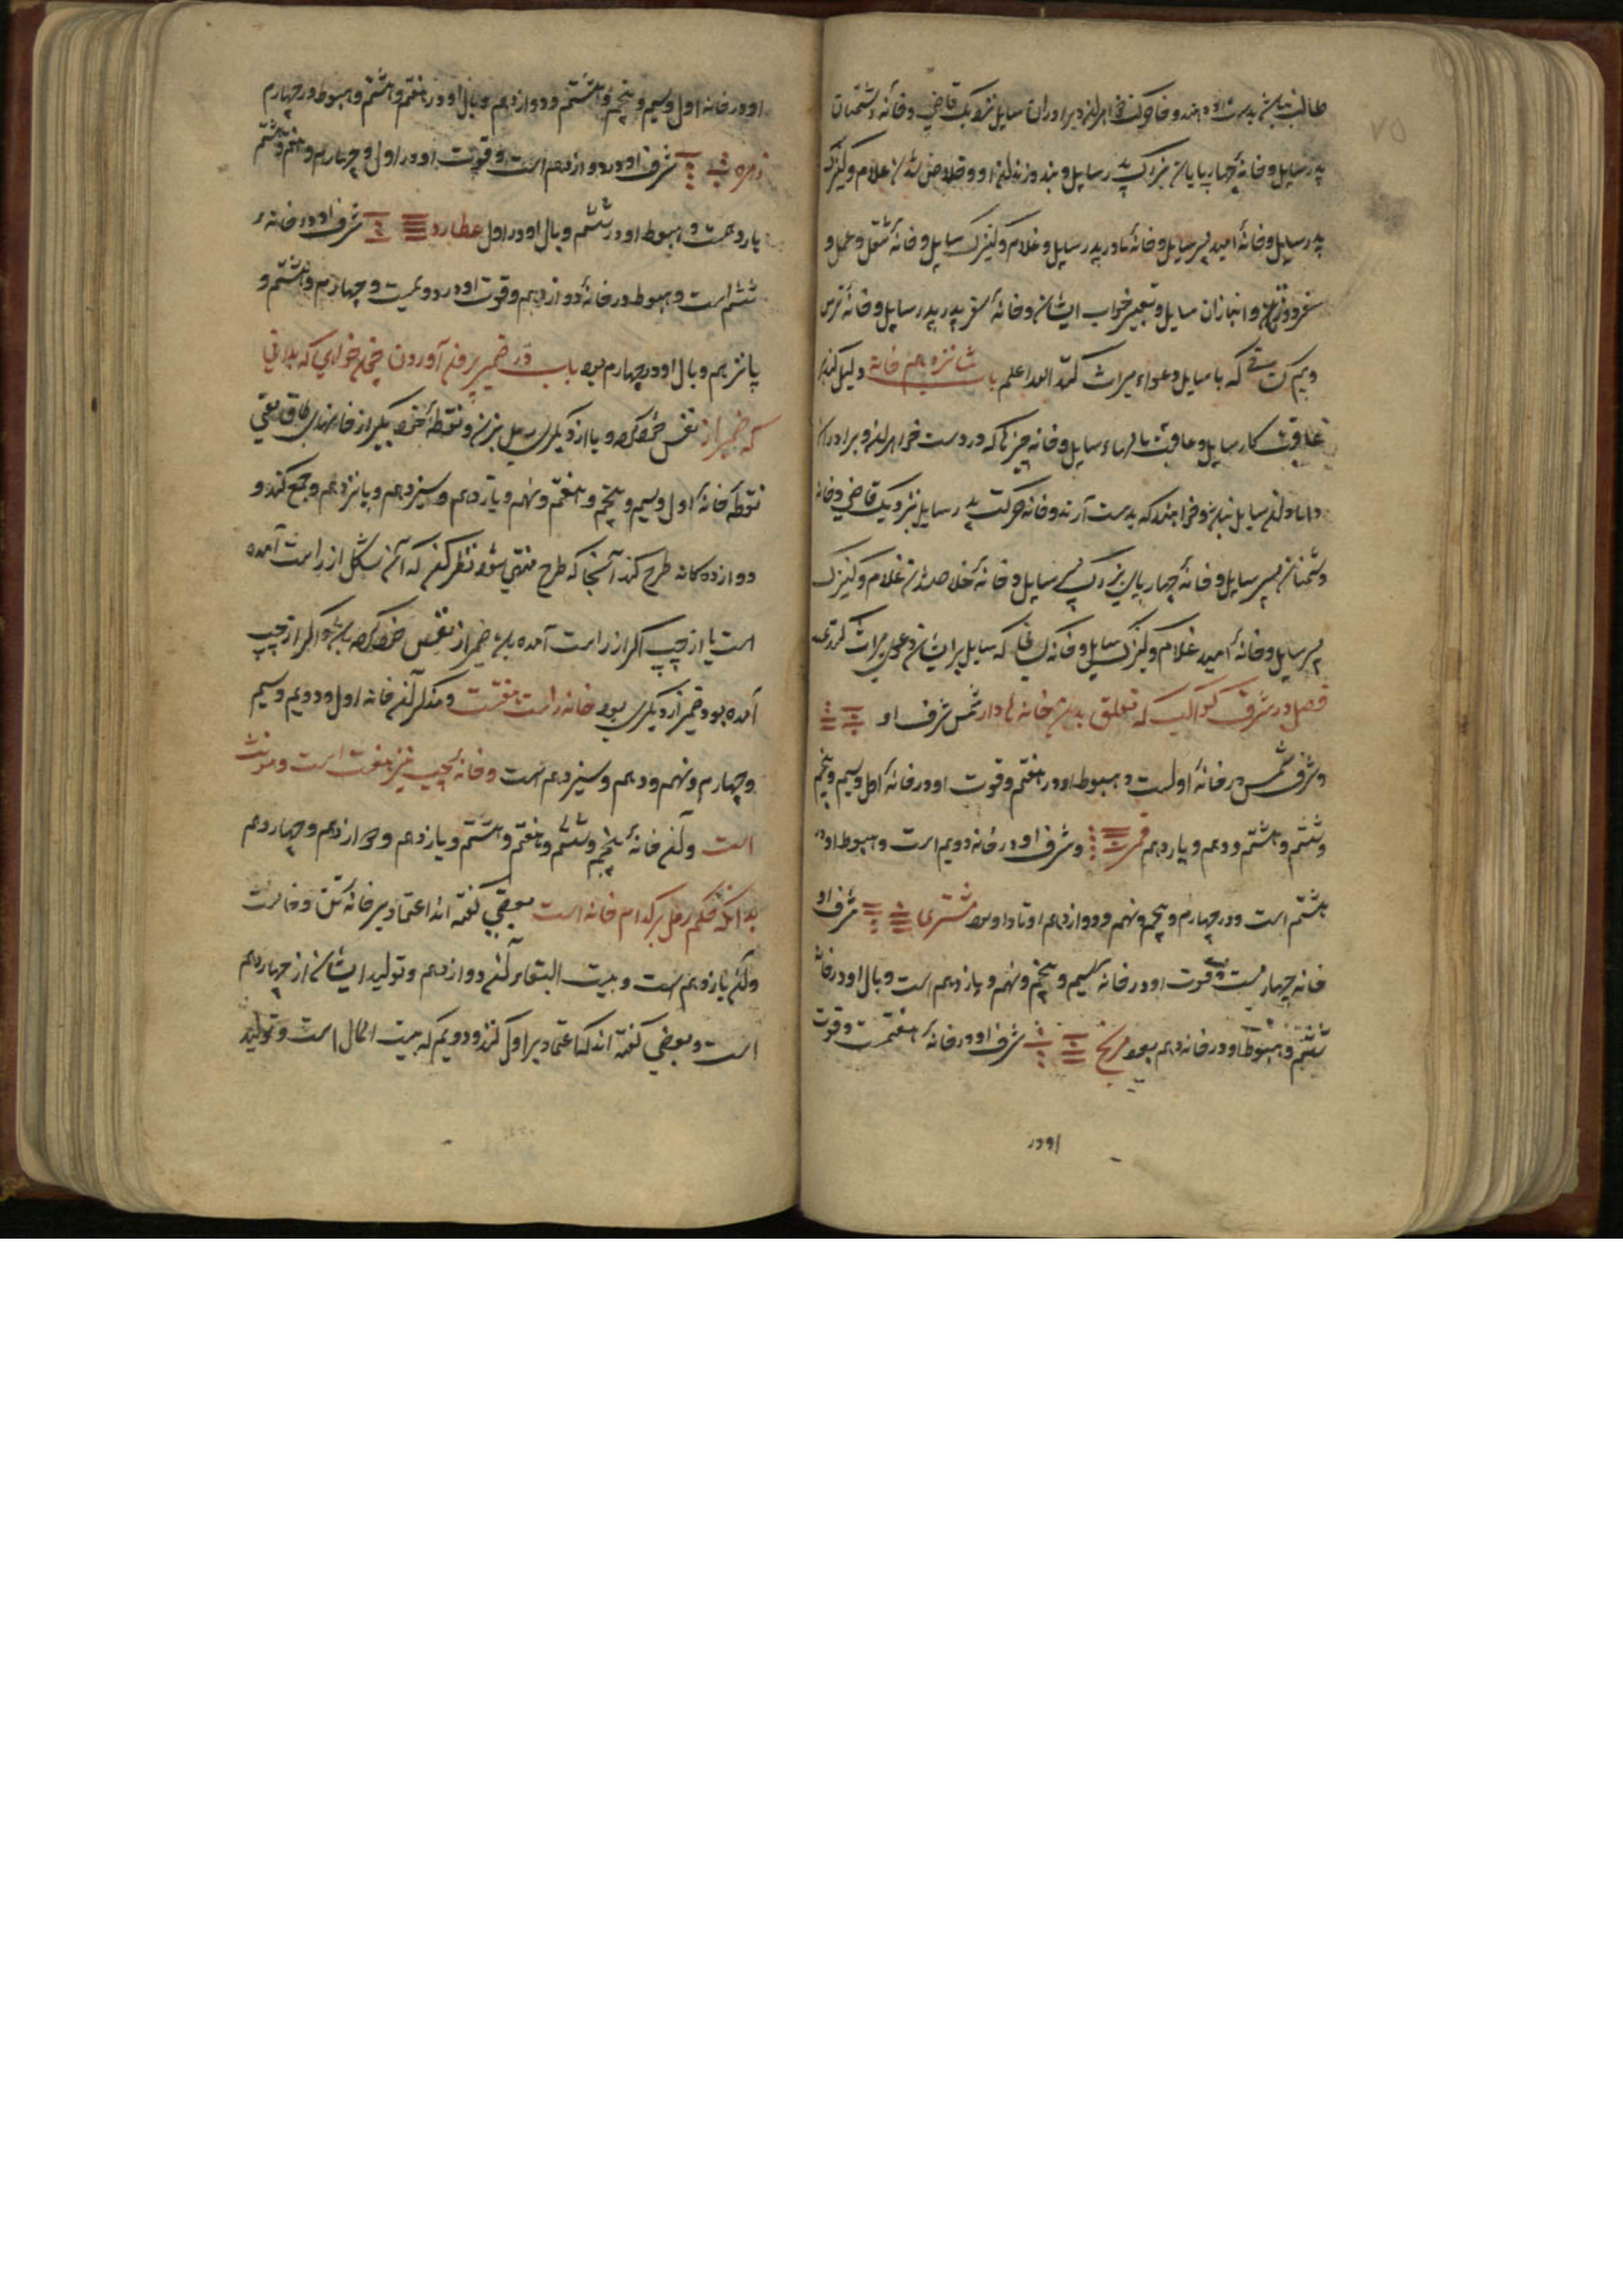 طالب باشند بدست او دهند و خانه حرکت خواهران و برادران سایل نزدیک قاضی و خانه دشمنان
پدر سایل و خانهٔ چهارپایان بزرک پدر سایل و بند و زندان او و خلاص شدن غلام و کنیزک
پدر سایل و خانهٔ امید پسر سایل و خانهٔ مادر پدر سایل و غلام و کنیزک سایل و خانهٔ شغل و عمل و
سفر و انبازان سایل و تعبیر خواب ایشان و خانهٔ سفر پدر پدر سایل و خانهٔ ترس
و بیم کسانی که با سایل دعواء میراث کنند الله اعلم باب شانزدهم خانه دلیل کند بر
عاقبت کار سایل و عاقبت سایل و خانه چیزها که در دست خواهران و برادران
دامادان سایل نباشد و خواهند که بدست آرند و خانه حرکت پدر سایل نزدیک قاضی و خانه
دشمنان پسر سایل و خانهٔ چهارپای بزرک پسر سایل و خانهٔ خلاص شدن غلام و کنیزک
پسر سایل و خانهٔ امید غلام و کنیزک سایل و خانه کسانی که سایل بر ایشان دعوی میراث کند
فصل در شرف کواکب که تعلق بدین خانه ها دارد شمس شرف او
و شرف شمس در خانهٔ اولست و هبوط او در هفتم و قوت او در خانهٔ اول و سیم و پنجم
و ششم و هشتم و دهم و یازدهم قمر و شرف او در خانه دویم است و هبوط او در
هشتم است و در چهارم و پنجم و نهم و دوازدهم اوتاد او بود مشتری شرف او
خانه چهارمست و قوت او در خانه سیم و پنجم و نهم و یازدهم است و بال او در خانهٔ
ششم و هبوط او در خانه دهم بود مریخ شرف او در خانهٔ هفتمست و قوت
او در
او در خانه اول و سیم و پنجم و هشتم و دوازدهم و بال او در هفتم و هشتم و هبوط در چهارم
زهره شرف او در دوازدهم است و قوت او در اول و چهارم و هفتم و هشتم
یازدهمست و هبوط او در ششم و بال او در اول عطارد شرف او در خانه
ششم است و هبوط در خانهٔ دوازدهم و قوت او در دویمست و چهارم و هشتم و
پانزدهم و بال او در چهارم بود باب در ضمیر بیرون آوردن چون خواهی که بدانی
که ضمیر از نفس خود کرده یا از دیکری رمل بزن و نقطهٔ بکیر از خانهای طاق یعنی
نقطه خانهٔ اول و سیم و پنجم و هفتم و نهم و یازدهم و سیزدهم و پانزدهم و جمع کند و
دوازده کانه طرح کند آنجا که طرح منتهی شود نظر کند که آن شکل از راست آمده
است یا از چپ اکر از راست آمده باشد ضمیر از نفس خود کرده باشد و اکر از چپ
آمده بود ضمیر از دیکری بود خانه راست هفتست و مذکر آن خانه اول و دویم و سیم
و چهارم و نهم و دهم و سیزدهم است و خانهٔ چپ نیز هفت است و مونث
است و آن خانهٔ پنجم و ششم و هفتم و هشتم و یازدهم و دوازدهم و چهاردهم
بدانکه حکم رمل بر کدام خانه است بعضی کفته اند اعتماد بر خانهٔ
و آن یازدهم است و بیت البقاء آن دوازدهم و تولید ایشان از چهاردهم
است و بعضی کفته اند که اعتماد بر اول کند و دویم که بیت المال است و تولید
۷۵